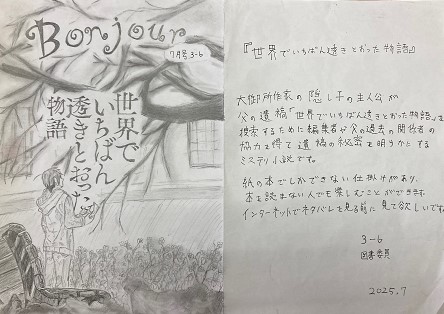 Bonjour
7月号 3-6
世界で
いちばん
透きとおった
物語
『世界でいちばん透きとおった物語』
大御所作家の隠し子の主人公が
父の遺稿『世界でいちばん透きとおった物語』を
捜索するために編集者や父の過去の関係者の
協力を得て遺稿の秘密を明らかとする
ミステリ小説です。
紙の本でしかできない仕掛けがあり、
本を読まない人でも楽しむことができます。
インターネットでネタバレを見る前に見て欲しいです。
3-6
図書委員
2025.7